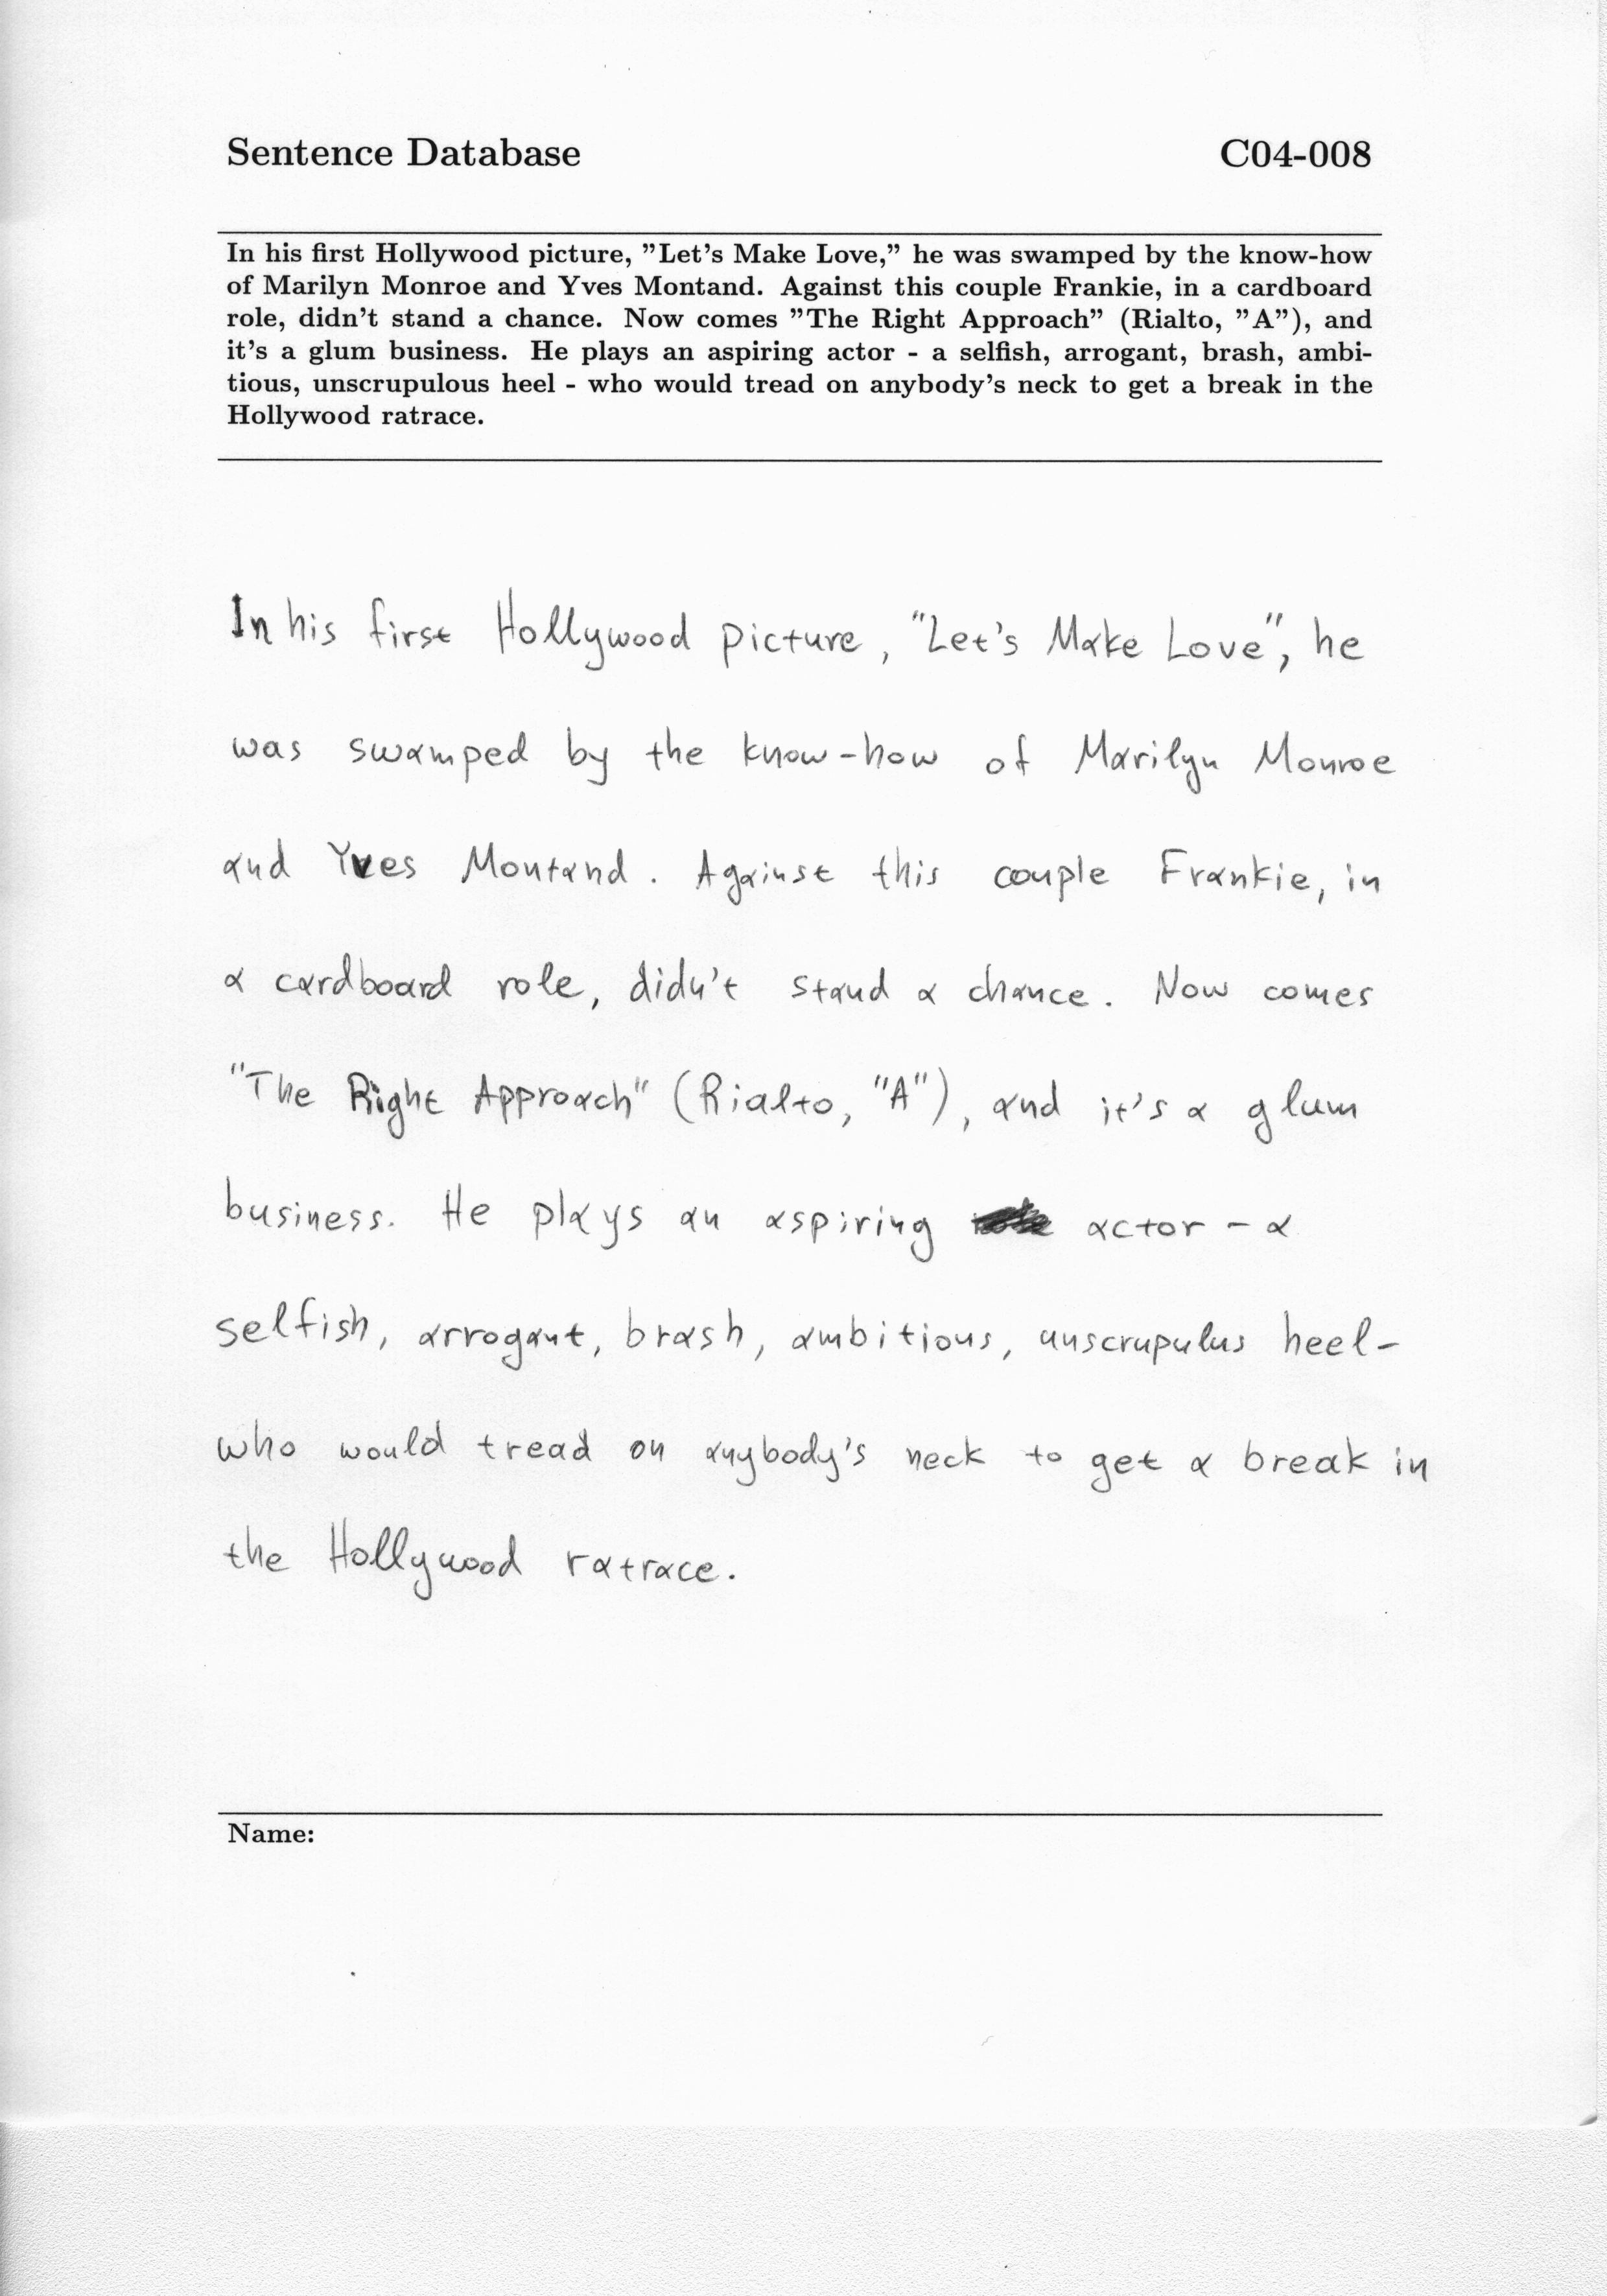 Sentence Database C04-008
In his first Hollywood picture, ”Let’s Make Love,” he was swamped by the know-how
of Marilyn Monroe and Yves Montand. Against this couple Frankie, in a cardboard
role, didn’t stand a chance. Now comes ”The Right Approach” (Rialto, ”A”), and
it’s a glum business. He plays an aspiring actor - a selfish, arrogant, brash, ambi-
tious, unscrupulous heel - who would tread on anybody’s neck to get a break in the
Hollywood ratrace.
In his first Hollywood picture, "Let's Make Love", he
was swamped by the know-how of Marilyn Monroe
and Yves Montand. Against this couple Frankie, in
a cardboard role, didn't stand a chance. Now comes
"The Right Approach" (Rialto, "A"), and it's a glum
business. He plays an aspiring actor - a
selfish, arrogant, brash, ambitious, unscrupulus heel-
who would tread on anybody's neck to get a break in
the Hollywood ratrace.
Name: